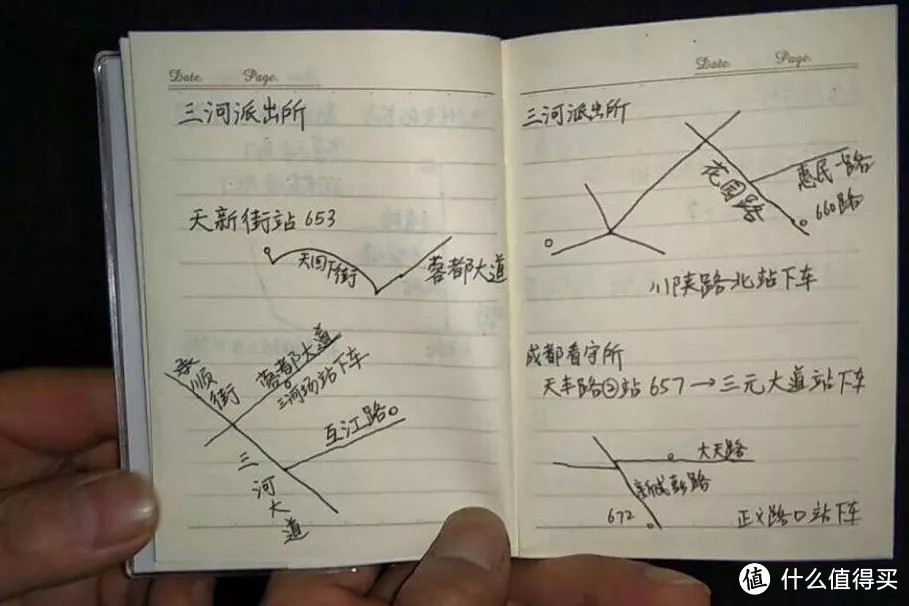 Date. Page.
三河派出所
天新街站 653
天回下街
蓉都大道
永顺街
蓉都大道
三河场站下车
互江路
三河大道
Date. Page.
三河派出所
花园路
惠民一路
660路
川陕路北站下车
成都看守所
天丰路②站 657→三元大道站下车
大天路
新成彭路
672
正义路口站下车
值 什么值得买